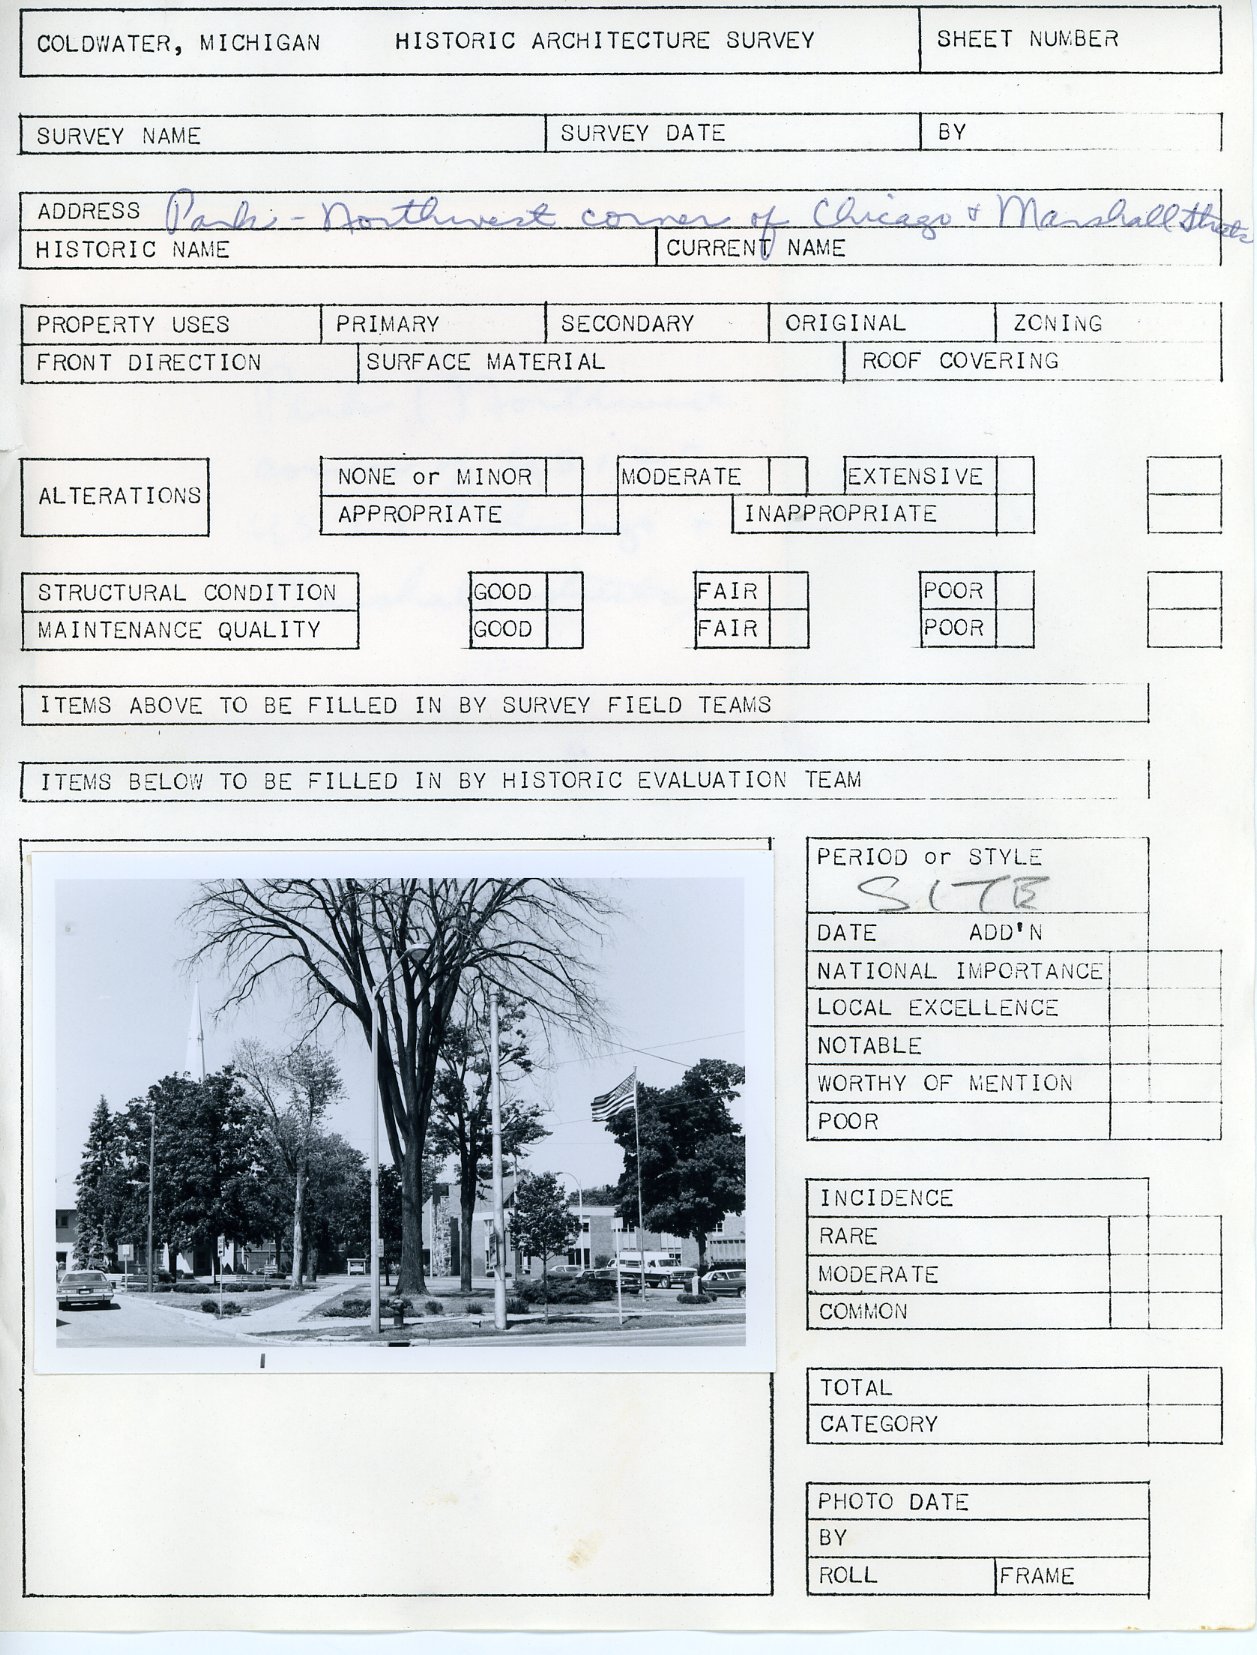 COLDWATER, MICHIGAN HISTORIC ARCHITECTURE SURVEY SHEET NUMBER
SURVEY NAME SURVEY DATE BY
ADDRESS Park - Northwest corner of Chicago & Marshall Streets
HISTORIC NAME CURRENT NAME
PROPERTY USES PRIMARY SECONDARY ORIGINAL ZONING
FRONT DIRECTION SURFACE MATERIAL ROOF COVERING
ALTERATIONS
NONE or MINOR MODERATE EXTENSIVE
APPROPRIATE INAPPROPRIATE
STRUCTURAL CONDITION GOOD FAIR POOR
MAINTENANCE QUALITY GOOD FAIR POOR
ITEMS ABOVE TO BE FILLED IN BY SURVEY FIELD TEAMS
ITEMS BELOW TO BE FILLED IN BY HISTORIC EVALUATION TEAM
PERIOD or STYLE
SITE
DATE ADD'N
NATIONAL IMPORTANCE
LOCAL EXCELLENCE
NOTABLE
WORTHY OF MENTION
POOR
INCIDENCE
RARE
MODERATE
COMMON
TOTAL
CATEGORY
PHOTO DATE
BY
ROLL FRAME